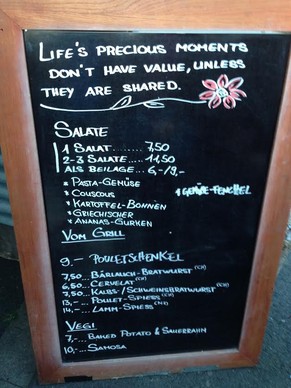 LIFE'S PRECIOUS MOMENTS
DON'T HAVE VALUE, UNLESS
THEY ARE SHARED.
SALATE
1 SALAT........ 7,50
2-3 SALATE..... 11,50
ALS BEILAGE... 6,-/9,-
* PASTA-GEMÜSE
* COUSCOUS
* KARTOFFEL-BOHNEN
* GRIECHISCHER
* ANANAS-GURKEN
FENCHEL
VOM GRILL
9.- POULETSCHENKEL
7,50... BÄRLAUCH-BRATWURST (CH)
6,50... CERVELAT (CH)
7,50... KALBS-/SCHWEINSBRATWURST (CH)
13,-... POULET-SPIESS (CH)
14,-... LAMM-SPIESS
VEGI
7,-... BAKED POTATO & SAUERRAHM
10,-... SAMOSA